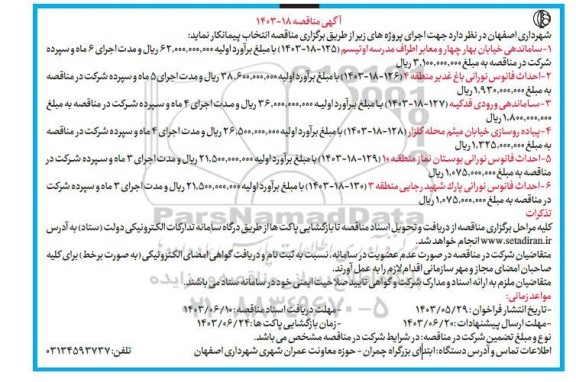 آگهی مناقصه ۱۸-۱۴۰۳
شهرداری اصفهان در نظر دارد جهت اجرای پروژه های زیر از طریق برگزاری مناقصه انتخاب پیمانکار نماید:
۱-ساماندهی خیابان بهار چهار و معابر اطراف مدرسه اوتیسم (۱۲۵-۱۸-۱۴۰۳) با مبلغ برآورد اولیه ۶۲,۰۰۰,۰۰۰,۰۰۰ ریال و مدت اجرای ۶ ماه و سپرده
شرکت در مناقصه به مبلغ ۳,۱۰۰,۰۰۰,۰۰۰ ریال
۲-احداث فانوس نورانی باغ غدیر منطقه ۴ (۱۲۶-۱۸-۱۴۰۳) با مبلغ برآورد اولیه ۳۸,۶۰۰,۰۰۰,۰۰۰ ریال و مدت اجرای ۵ ماه و سپرده شرکت در مناقصه
به مبلغ ۱,۹۳۰,۰۰۰,۰۰۰ ریال
۳-ساماندهی ورودی فدکیه (۱۲۷-۱۸-۱۴۰۳) با مبلغ برآورد اولیه ۳۶,۰۰۰,۰۰۰,۰۰۰ ریال و مدت اجرای ۴ ماه و سپرده شرکت در مناقصه به مبلغ
۱,۸۰۰,۰۰۰,۰۰۰ ریال
۴-پیاده روسازی خیابان میثم محله گلزار (۱۲۸-۱۸-۱۴۰۳) با مبلغ برآورد اولیه ۲۶,۵۰۰,۰۰۰,۰۰۰ ریال و مدت اجرای ۴ ماه و سپرده شرکت در مناقصه
به مبلغ ۱,۳۲۵,۰۰۰,۰۰۰ ریال
۵-احداث فانوس نورانی بوستان نماز منطقه ۱۰ (۱۲۹-۱۸-۱۴۰۳) با مبلغ برآورد اولیه ۲۱,۵۰۰,۰۰۰,۰۰۰ ریال و مدت اجرای ۳ ماه و سپرده شرکت در
مناقصه به مبلغ ۱,۰۷۵,۰۰۰,۰۰۰ ریال
۶-احداث فانوس نورانی پارک شهید رجایی منطقه ۳ (۱۳۰-۱۸-۱۴۰۳) با مبلغ برآورد اولیه ۲۱,۵۰۰,۰۰۰,۰۰۰ ریال و مدت اجرای ۳ ماه و سپرده شرکت
در مناقصه به مبلغ ۱,۰۷۵,۰۰۰,۰۰۰ ریال
تذکرات
کلیه مراحل برگزاری مناقصه از دریافت و تحویل اسناد مناقصه تا بازگشایی پاکت ها از طریق درگاه سامانه تدارکات الکترونیکی دولت (ستاد) به آدرس
www.setadiran.ir انجام خواهد شد.
متقاضیان شرکت در مناقصه در صورت عدم عضویت در سامانه، نسبت به ثبت نام و دریافت گواهی امضای الکترونیکی (به صورت برخط) برای کلیه
صاحبان امضای مجاز و مهر سازمانی اقدام لازم را به عمل آورند.
متقاضیان ملزم به ارائه اسناد و مدارک شرکت و گواهی تایید صلاحیت ایمنی خود در سامانه ستاد می باشند.
مواعد زمانی:
-تاریخ انتشار فراخوان: ۱۴۰۳/۰۵/۲۹ -مهلت دریافت اسناد مناقصه: ۱۴۰۳/۰۶/۱۰
-مهلت ارسال پیشنهادات: ۱۴۰۳/۰۶/۲۰ -زمان بازگشایی پاکت ها: ۱۴۰۳/۰۶/۲۴
نوع و مبلغ تضمین شرکت در مناقصه: در شرایط شرکت در مناقصه مشخص می باشد.
اطلاعات تماس و آدرس دستگاه: ابتدای بزرگراه چمران - حوزه معاونت عمران شهری شهرداری اصفهان تلفن: ۰۳۱۳۴۵۹۳۷۳۷
ParsNamadData
۰۲۱-۸۸۳۴۹۶۷۰-۵